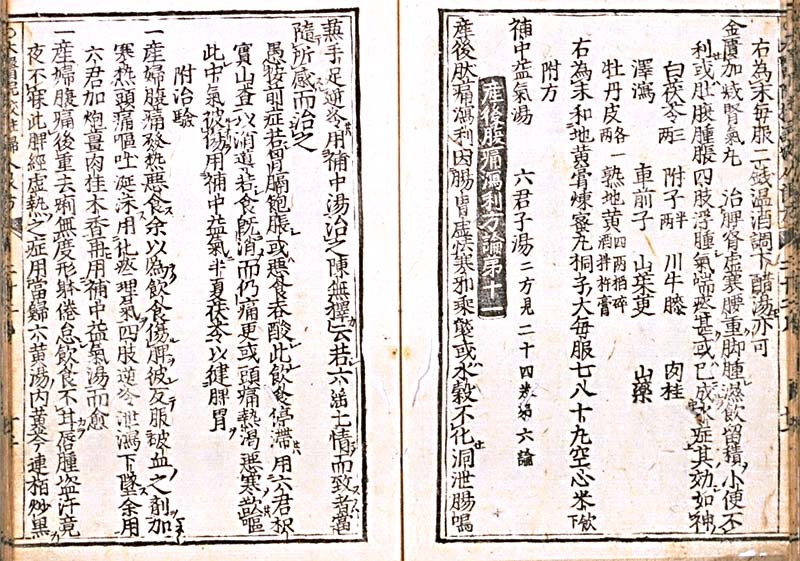 右為末毎服二錢温酒調下醋湯亦可
金匱加減腎氣丸 治脾腎虚寒腰重脚腫濕飲留積小便不
利或肚腹腫脹四肢浮腫氣喘痰甚或已成水症其効如神
白茯苓三兩 附子半兩 川牛膝 肉桂
澤瀉 車前子 山茱萸 山藥
牡丹皮各一兩 熟地黄四兩搯碎酒拌杵膏
右為末和地黄膏煉蜜丸桐子大毎服七八十丸空心米飲下
附方
補中益氣湯 六君子湯 二方見二十四巻第六論
産後腹痛瀉利方論第十一
産後肚痛瀉利因腸胃虚怯寒邪乗襲或水穀不化洞泄腸鳴
手足逆冷用補中湯治之陳無擇云若六淫七情而致者當
隨所感而治之
愚按前症若胃膈飽脹或悪食呑酸此飲食停滞用六君枳
實山査以消導若食既消而仍痛更或頭痛熱渇悪寒欲嘔
此中氣被傷用補中益氣半夏茯苓以健脾胃
附治驗
一産婦腹痛發熱悪食余以為飲食傷脾彼反服破血之劑加
寒熱頭痛嘔吐涎沫用化痰理氣四肢逆冷泄瀉下墜余用
六君加炮薑肉桂木香再用補中益氣湯而愈
一産婦腹痛後重去痢無度形軀倦怠飲食不甘唇腫盗汗竟
夜不寐此脾經虚熱之症用當歸六黄湯内黄芩連柏炒黒